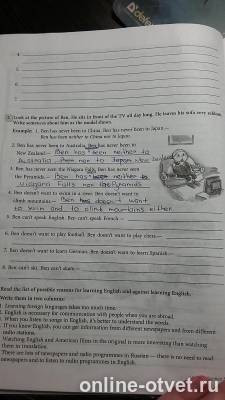 4.
5.
6.
Look at the picture of Ben. He sits in front of the TV all day long. He leaves his sofa very seldom.
Write sentences about him as the model shows.
Example: 1. Ben has never been to China. Ben has never been to Japan.—
Ben has been neither to China nor to Japan.
2. Ben has never been to Australia. Ben has never been to
New Zealand.— Ben has been neither to
Australia nor to New Zealand
3. Ben has never seen the Niagara Falls. Ben has never seen
the Pyramids.— Ben has neither
Niagara Falls nor Pyramids
4. Ben doesn't want to swim in a river. Ben doesn't want to
climb mountains.— Ben doesn't want
to swim and to climb mountains either.
5. Ben can't speak English. Ben can't speak French.—
6. Ben doesn't want to play football. Ben doesn't want to play chess.—
7. Ben doesn't want to learn German. Ben doesn't want to learn Spanish.—
8. Ben can't ski. Ben can't skate.—
Read the list of possible reasons for learning English and against learning English.
Write them in two columns:
Learning foreign languages takes too much time.
English is necessary for communication with people when you are abroad.
When you listen to songs in English, it's better to understand the words.
If you know English, you can get information from different newspapers and from different
radio stations.
Watching English and American films in the original is more interesting than watching
them in translation.
There are lots of newspapers and radio programmes in Russian — there is no need to read
newspapers and to listen to radio programmes in English.
online-otvet.ru